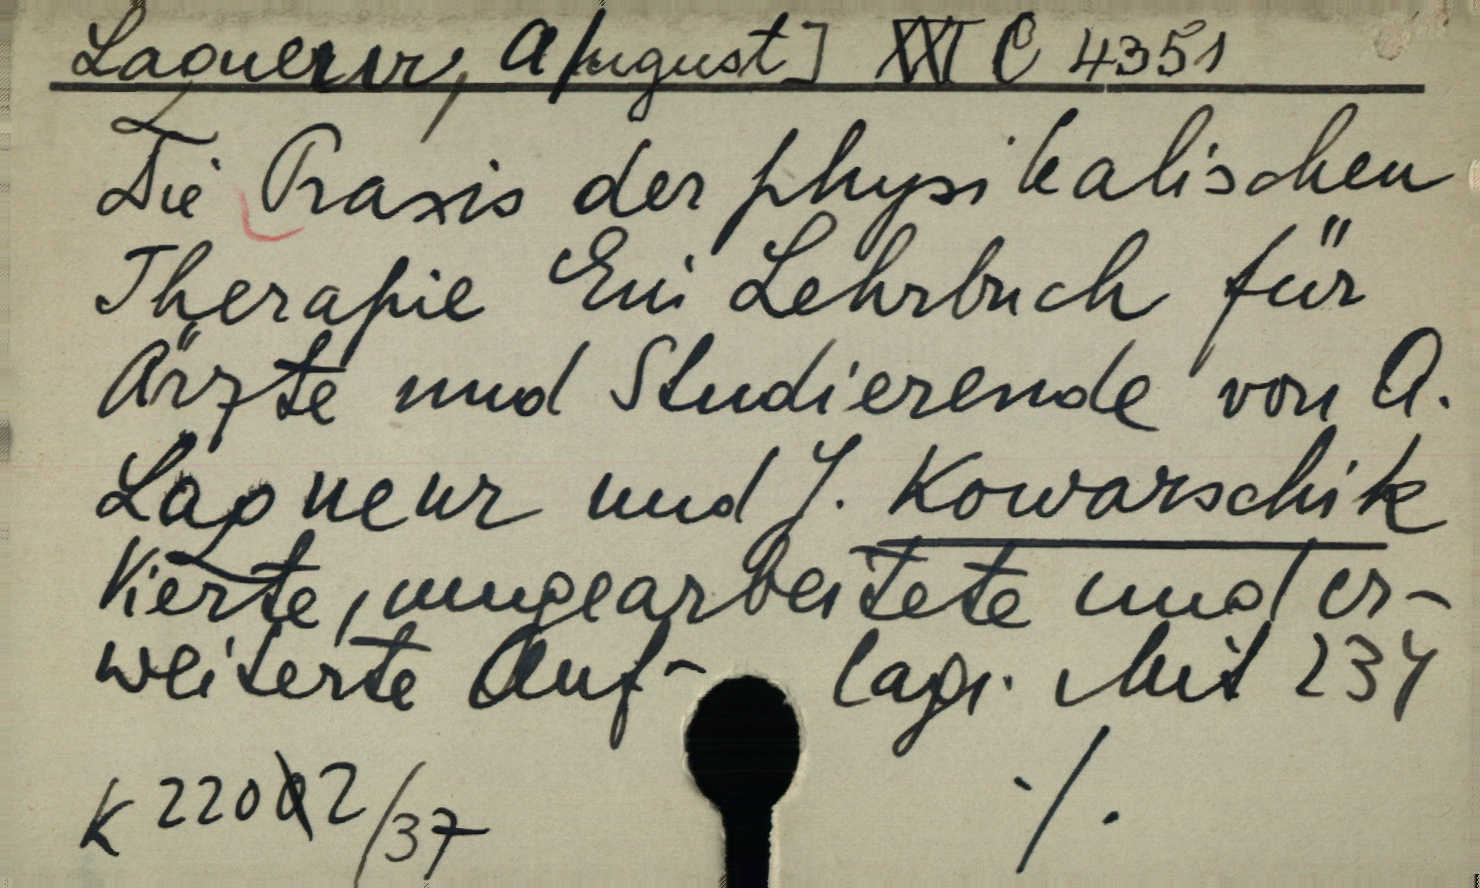 Laqueur, A[ugust] XXI C 4351
Die Praxis der physikalischen
Therapie Ein Lehrbuch für
Ärzte und Studierende von A.
Laqueur und J. Kowarschik
Vierte, umgearbeitete und er-
weiterte Auf- lage. Mit 234
K 2202/37 ./.